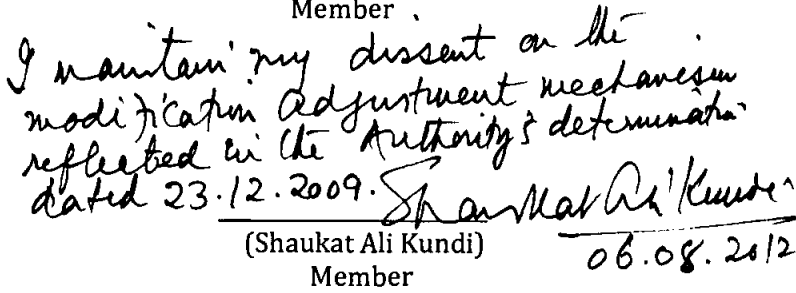 Member
I maintain my dissent on the
modification adjustment mechanism
reflected in the Authority's determination
dated 23.12.2009. Shaukat Ali Kundi
(Shaukat Ali Kundi) 06.08.2012
Member